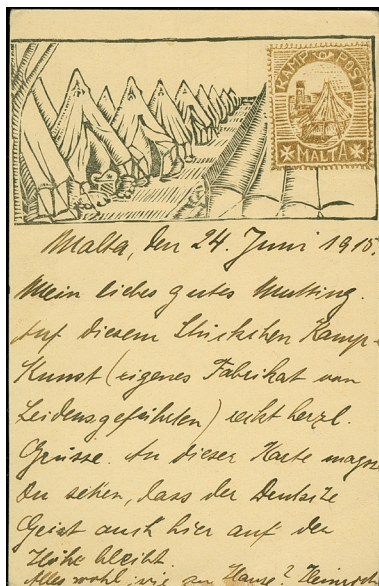 KAMP POST
MALTA
Malta, den 24. Juni 1915.
Mein liebes gutes Mutting.
Auf diesem Stückchen Kamp-
Kunst (eigenes Fabrikat von
Leidensgefährten) recht herzl.
Grüsse. An dieser Karte magst
Du sehen, dass der Deutsche
Geist auch hier auf der
Höhe bleibt.
Alles wohl, wie zu Hause? Heinrich